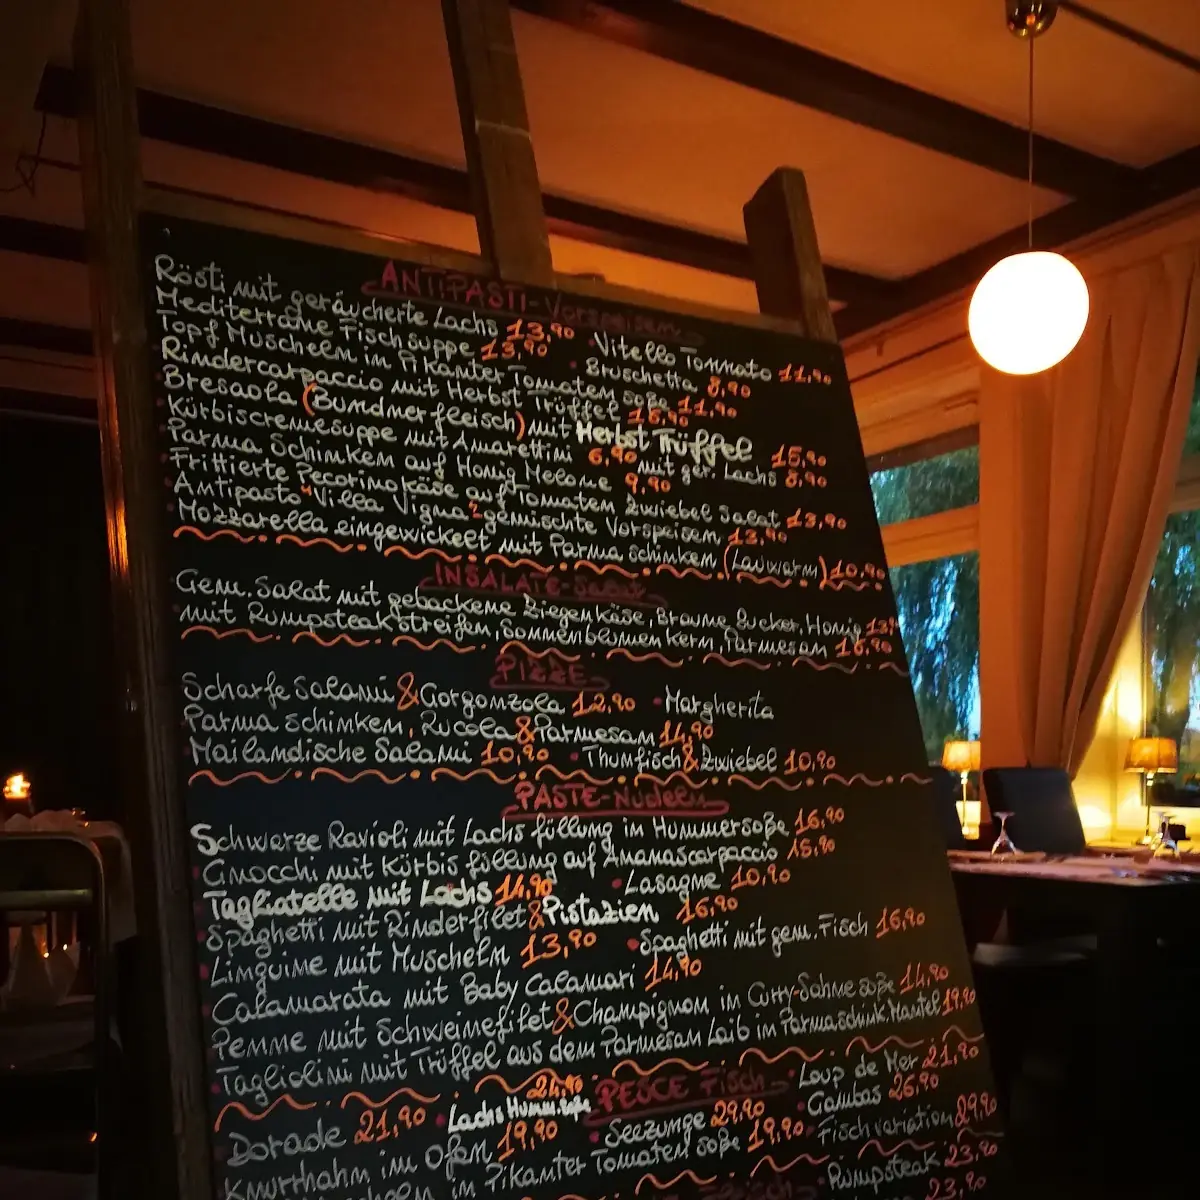 ANTIPASTI-Vorspeisen
Rösti mit geräucherte Lachs 13,90 · Vitello Tonnato 11,90
Mediterrane Fischsuppe 13,90 · Bruschetta 8,90
Topf Muscheln in Pikanter Tomaten soße 11,90
Rindercarpaccio mit Herbst Trüffel 18,90
Bresaola (Bündnerfleisch) mit Herbst Trüffel 15,90
Kürbiscremesuppe mit Amarettini 6,90 mit ger. Lachs 8,90
Parma Schinken auf Honig Melone 9,90
Frittierte Pecorinokäse auf Tomaten Zwiebel Salat 13,90
Antipasto "Villa Vigna" gemischte Vorspeisen 13,90
Mozzarella eingewickelt mit Parma schinken (Lauwarm) 10,90
INSALATE-Salat
Gem. Salat mit gebackene Ziegenkäse, Braune Zucker, Honig
mit Rumpsteakstreifen, Sonnenblumen kern, Parmesan 16,90
PIZZE
Scharfe Salami & Gorgonzola 12,90 · Margherita
Parma Schinken, Rucola & Parmesan 14,90
Mailandische Salami 10,90 · Thunfisch & Zwiebel 10,90
PASTE-Nudeln
Schwarze Ravioli mit Lachs füllung in Hummersoße 16,90
Gnocchi mit Kürbis füllung auf Ananascarpaccio 15,90
Tagliatelle mit Lachs 14,90 · Lasagne 10,90
Spaghetti mit Rinderfilet & Pistazien 16,90
Linguine mit Muscheln 13,90 · Spaghetti mit gem. Fisch 16,90
Calamarata mit Baby Calamari 14,90
Penne mit Schweinefilet & Champignon in Curry-Sahne soße 14,90
Tagliolini mit Trüffel aus dem Parmesan Laib in Parmaschink. Mantel 19,90
PESCE Fisch
Dorade 21,90 · Lachs Humm.soße 24,90 · Loup de Mer 21,90
Knurrhahn im Ofen 19,90 · Seezunge 29,90 · Gambas 26,90
in Pikanter Tomaten soße 19,90 · Fischvariation 29,90
Rumpsteak 23,90
23,90